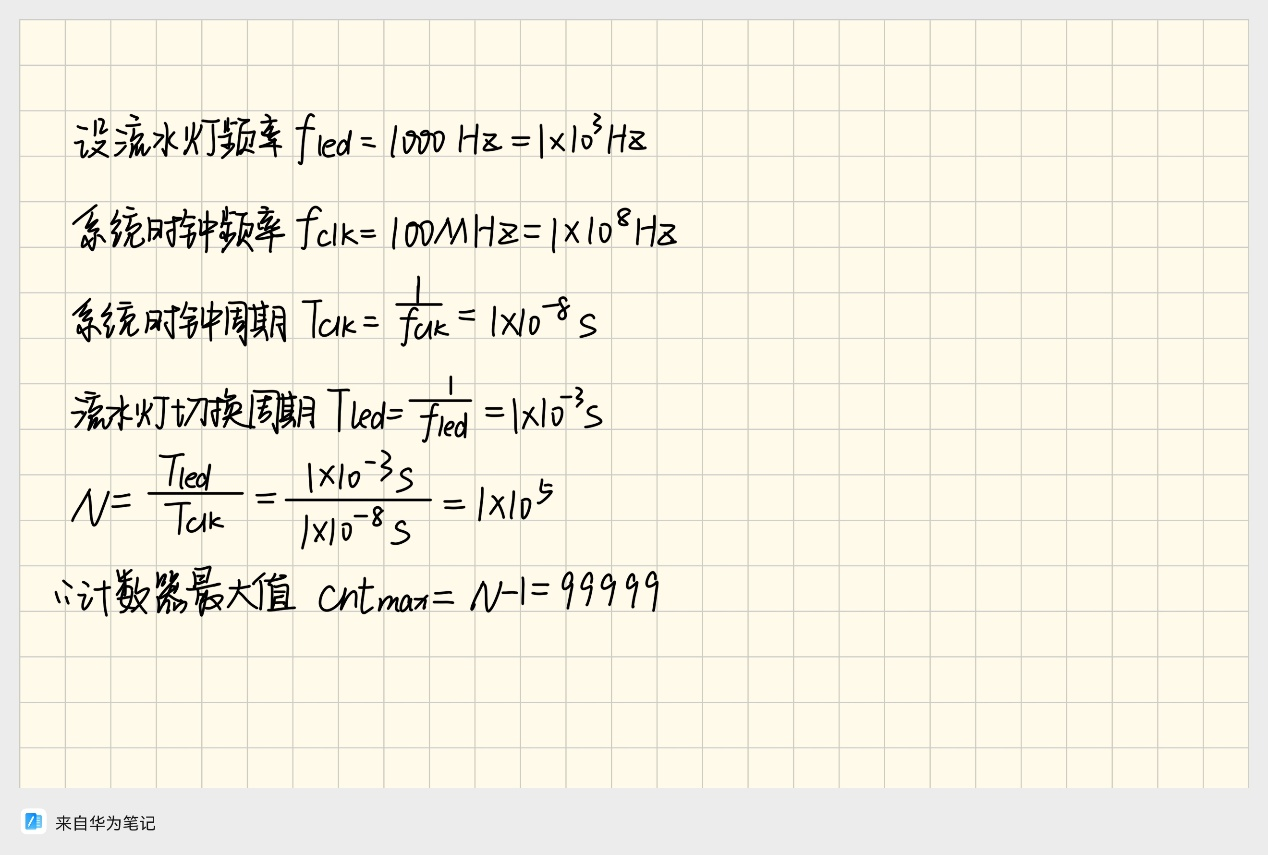 设流水灯频率 f_led = 1000 Hz = 1×10³Hz
系统时钟频率 f_clk = 100MHz = 1×10⁸Hz
系统时钟周期 T_clk = 1/f_clk = 1×10⁻⁸ s
流水灯切换周期 T_led = 1/f_led = 1×10⁻³s
N = T_led/T_clk = 1×10⁻³s/1×10⁻⁸s = 1×10⁵
∴计数器最大值 cnt_max = N-1 = 99999
来自华为笔记